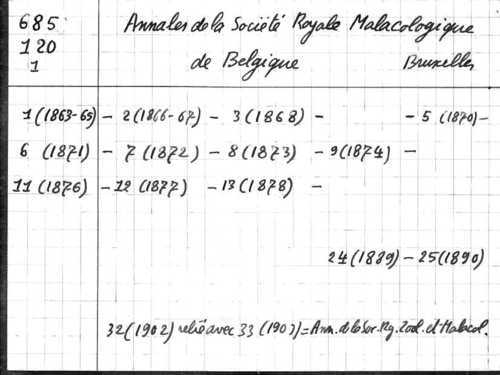 685 Annales de la Société Royale Malacologique
120 de Belgique Bruxelles
1
1 (1863-65) - 2 (1866-67) - 3 (1868) - - 5 (1870) -
6 (1871) - 7 (1872) - 8 (1873) - 9 (1874) -
11 (1876) - 12 (1877) - 13 (1878) -
24 (1889) - 25 (1890)
32 (1902) relié avec 33 (1903) = Ann. de la Soc. Ry. Zool. et Malacol.